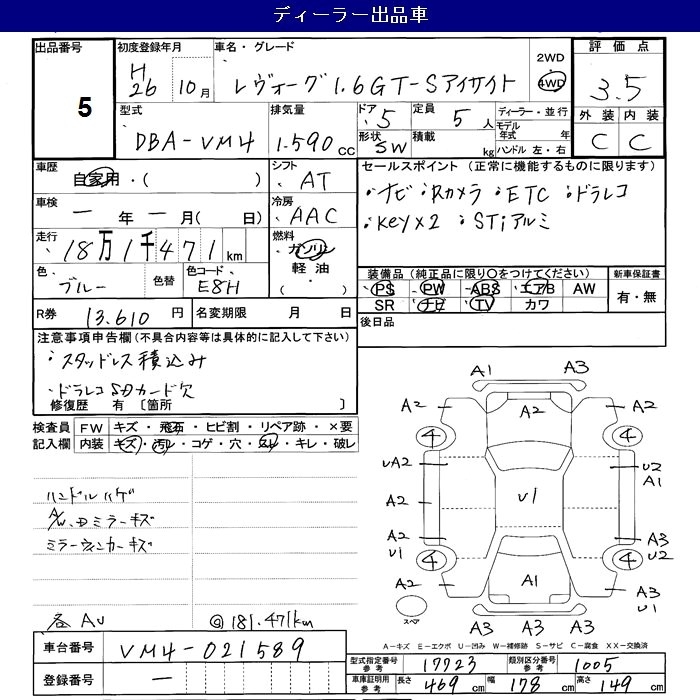 ディーラー出品車
出品番号
5
初度登録年月
H26 10月
車名・グレード
レヴォーグ1.6GT-Sアイサイト
2WD
4WD
評価点
3.5
外装 内装
C C
型式
DBA-VM4
排気量
1.590cc
ドア
5
定員
5人
形状
SW
積載
kg
ディーラー・並行
モデル年式 年
ハンドル 左・右
車歴
自家用・( )
シフト
AT
車検
一年一月( 日)
冷房
AAC
走行
18万1千471km
燃料
ガソリン
軽油
( ・ )
色
ブルー
色替
色コード
E8H
R券
13.610円
名変期限 月 日
セールスポイント(正常に機能するものに限ります)
・ナビ・Rカメラ・ETC・ドラレコ
・Keyx2 ・STiアルミ
装備品(純正品に限り○をつけてください)
PS PW ABS エアB AW
SR ナビ TV カワ
新車保証書
有・無
後日品
注意事項申告欄(不具合内容等は具体的に記入して下さい)
・スタッドレス積込み
・ドラレコSDカード欠
修復歴 有〔箇所 〕
検査員記入欄
FW キズ・飛石・ヒビ割・リペア跡・×要
内装 キズ・汚レ・コゲ・穴・スレ・キレ・破レ
ハンドルハゲ
A/W、Dミラーキズ
ミラーウィンカーキズ
各AU
181.471km
A1 A3
A2 A2 A2
4 4
UA2 U2
A1
A2 U1
A2 A3
U1 U2
4 4
A2 A1 A3
U1
スペア
A3 A3 A3
A-キズ E-エクボ U-凹み W-補修跡 S-サビ C-腐食 XX-交換済
車台番号
VM4-021589
登録番号
一
型式指定番号
参考
17723
類別区分番号
参考
1005
車庫証明用
参考
長さ 469cm 幅 178cm 高さ 149cm